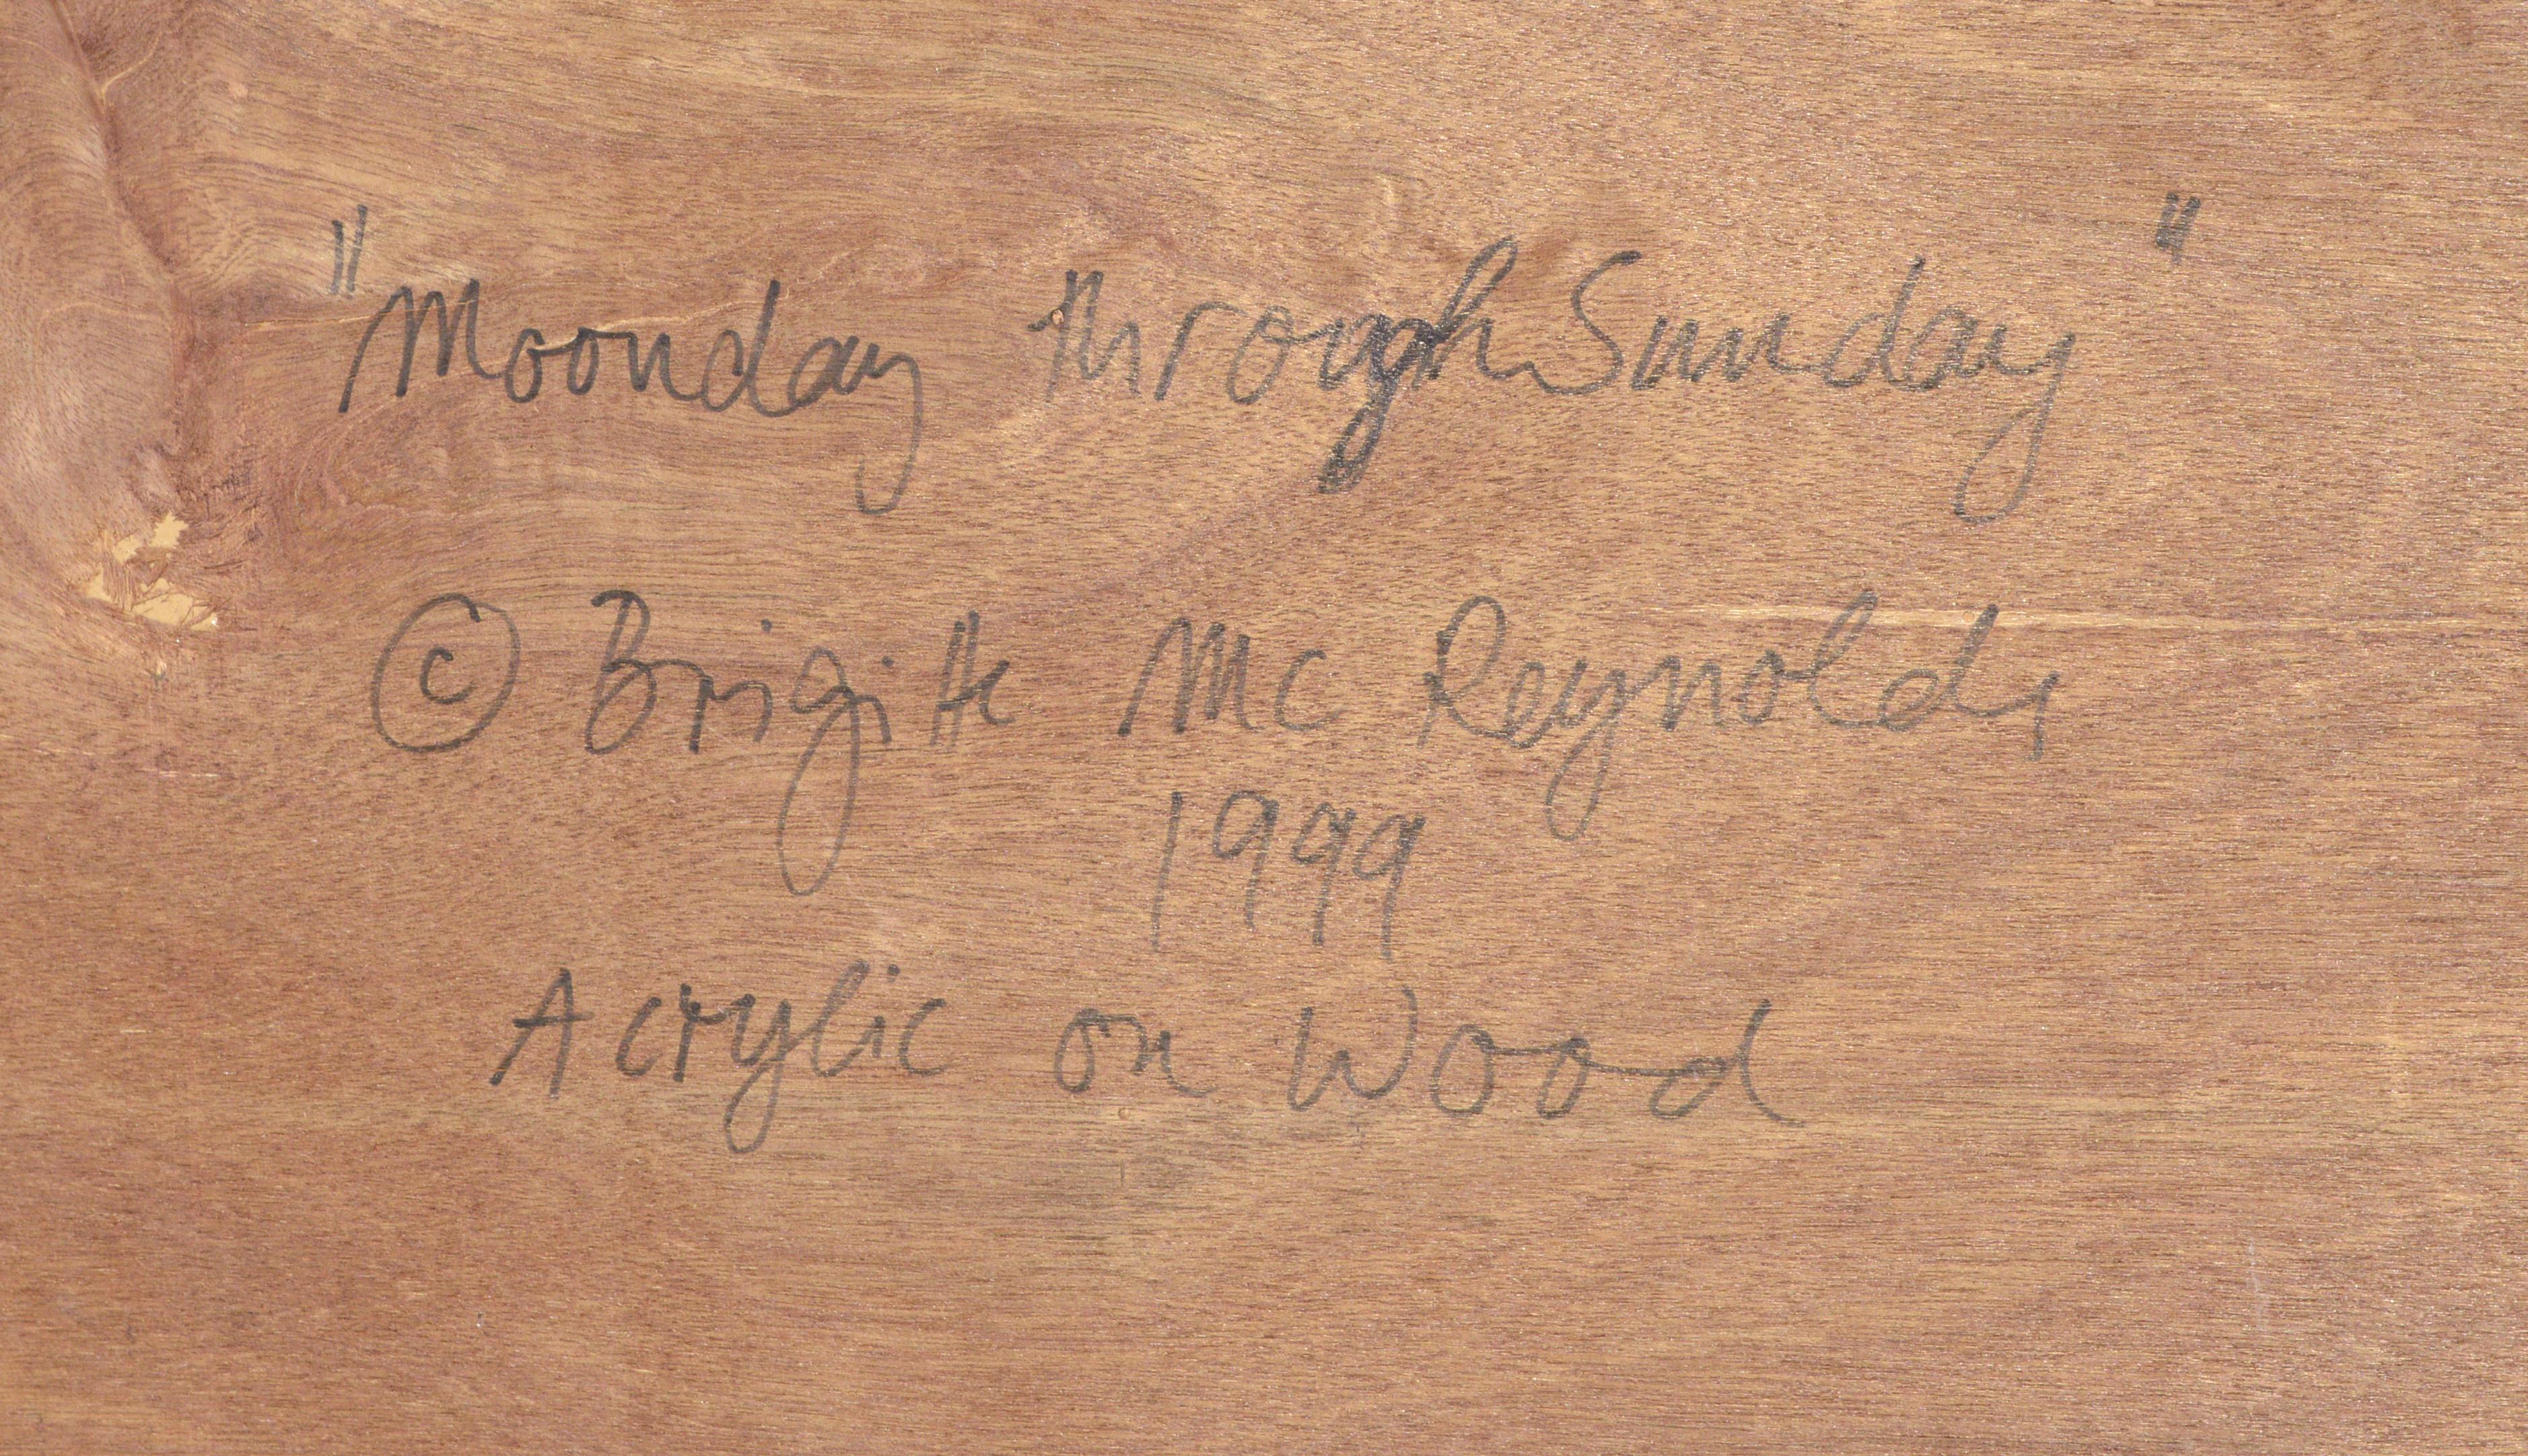 "Moonday through Sunday"
© Brigitte Mc Reynolds
1999
Acrylic on Wood